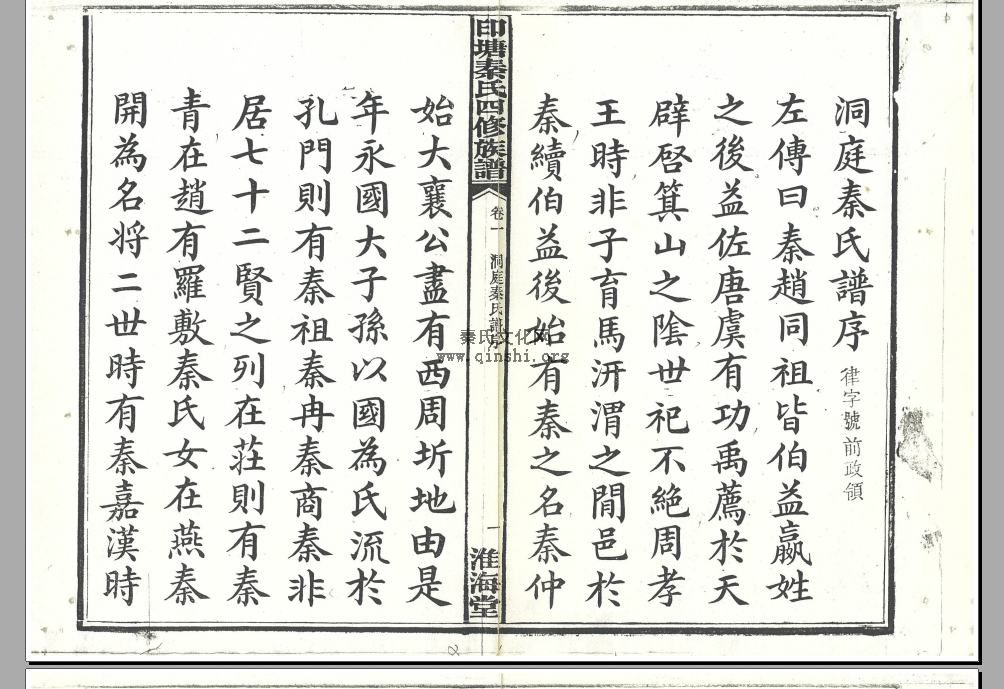 洞庭秦氏譜序 律字號前政領
左傳曰秦趙同祖皆伯益嬴姓
之後益佐唐虞有功禹薦於天
辟啓箕山之陰世祀不絕周孝
王時非子育馬汧渭之閒邑於
秦續伯益後始有秦之名秦仲
印塘秦氏四修族譜
卷一 洞庭秦氏譜序
一
淮海堂
始大襄公盡有西周圻地由是
年永國大子孫以國為氏流於
孔門則有秦祖秦冉秦商秦非
居七十二賢之列在莊則有秦
青在趙有羅敷秦氏女在燕秦
開為名將二世時有秦嘉漢時
秦氏文化网
www.qinshi.org
2